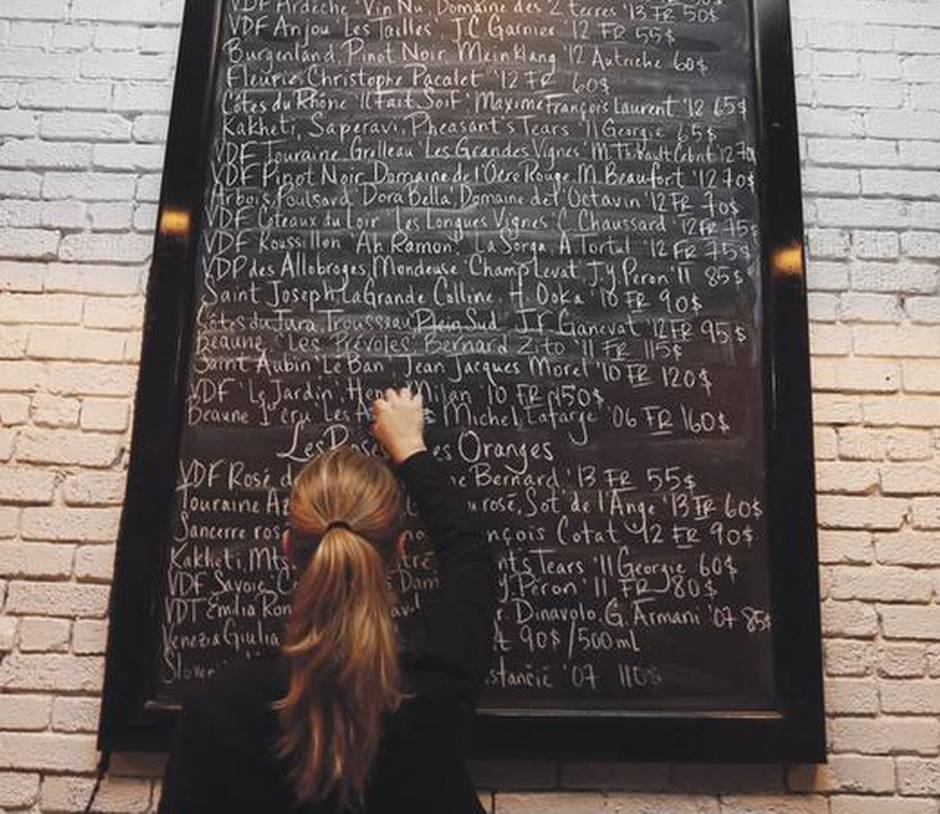 VDF Ardèche 'Vin Nu' Domaine des 2 terres '13 FR 50$
VDF Anjou 'Les Tailles' J.C Garnier '12 FR 55$
Burgenland, Pinot Noir Meinklang '12 Autriche 60$
Fleurie, Christophe Pacalet '12 FR 60$
Côtes du Rhône 'Il Fait Soif' Maxime François Laurent '12 65$
Kakheti, Saperavi, Pheasant's Tears '11 Georgie 65$
VDF Touraine, Grolleau 'Les Grandes Vignes' M.Thibault '12 70$
VDF Pinot Noir, Domaine de l'Ocre Rouge, M. Beaufort '12 70$
Arbois, Poulsard, Dora Bella, Domaine de l'Octavin '12 FR 70$
VDF Coteaux du Loir 'Les Longues Vignes' C. Chaussard '12 FR 75$
VDF Roussillon 'Ah Ramon' La Sorga, A.Tortul '12 FR 75$
VDP des Allobroges, Mondeuse 'Champ Levat' J.Y.Peron '11 85$
Saint Joseph, La Grande Colline, H. Ooka '10 FR 90$
Côtes du Jura, Trousseau 'Plein Sud' J.F. Ganevat '12 FR 95$
Beaune, 'Les Prévoles' Bernard Zito '11 FR 115$
Saint Aubin 'Le Ban' Jean Jacques Morel '10 FR 120$
VDF 'Le Jardin', Milan '10 FR 150$
Beaune 1er cru 'Les Michel Lafarge '06 FR 160$
Les Oranges
VDF Rosé Bernard '13 FR 55$
Touraine rosé, Sot de l'Ange '13 FR 60$
Sancerre Cotat '12 FR 90$
Kakheti, Mts Tears '11 Georgie 60$
VDF Savoie Peron '11 FR 80$
VDT Emilia Dinavolo, G. Armani '07 85$
Venezia Giulia 90$/500ml
'07 110$